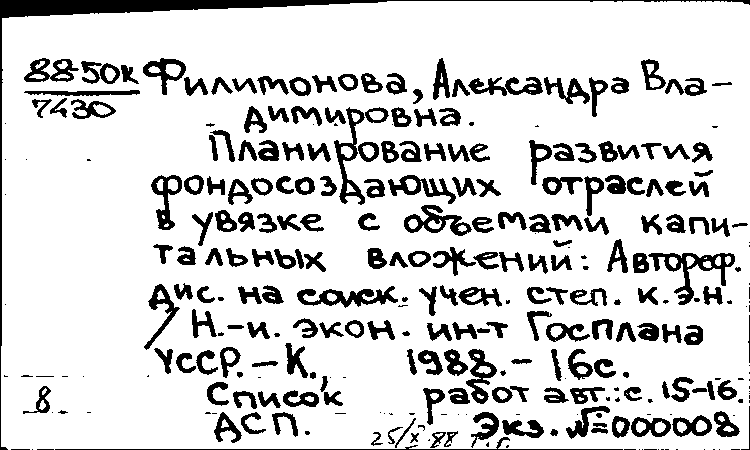 88-50к
7430
Филимонова, Александра Вла-
димировна.
Планирование развития
фондосоздающих отраслей
в увязке с объемами капи-
тальных вложений: Автореф.
дис. на соиск. учен. степ. к.э.н.
/ Н.-и. экон. ин-т Госплана
УССР. – К., 1988. – 16с.
8 Список работ авт.: с. 15-16.
ДСП. Экз. №=000008
25/X 88 т.г.